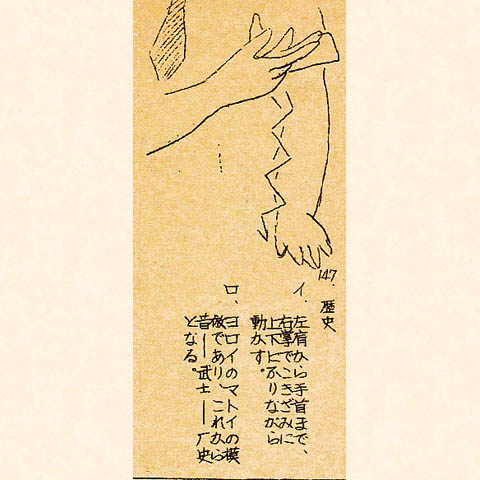 147. 歴史
イ、左肩から手首まで、
右掌でこきざみに
上下にふりながら
動かす。
ロ、ヨロイのマトイの模
倣であり、これから
昔——武士——厂史
となる。